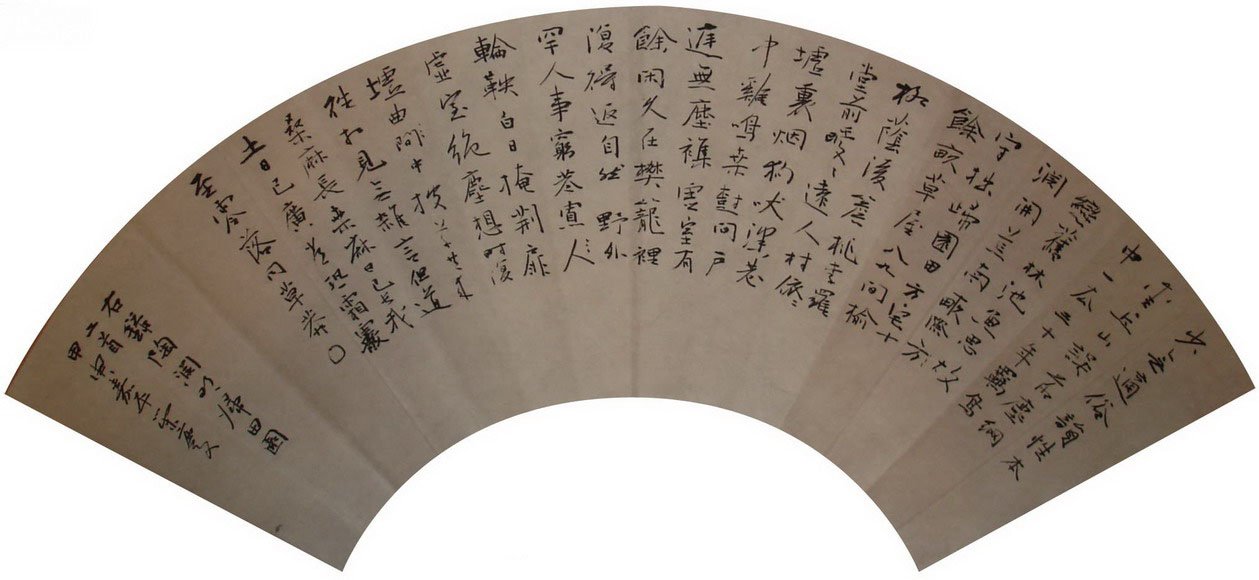 少無適俗韻性本
愛丘山誤落塵網
中一去三十年羈鳥
戀舊林池魚思故
淵開荒南畝際
守拙歸園田方宅十
餘畝草屋八九間榆
柳蔭後簷桃李羅
堂前曖〻遠人村依〻
墟裏烟狗吠深巷
中雞鳴桑樹間戶
庭無塵雜虛室有
餘閑久在樊籠裡
復得返自然 野外
罕人事窮巷寡人
輪鞅白日掩荆扉
虛室絕塵想時復
墟曲中披草共來
往相見無雜言但道
桑麻長桑麻日已長我
土日已廣常恐霜霰
至零落同草莽
右錄陶淵明歸田園
二首
甲申春